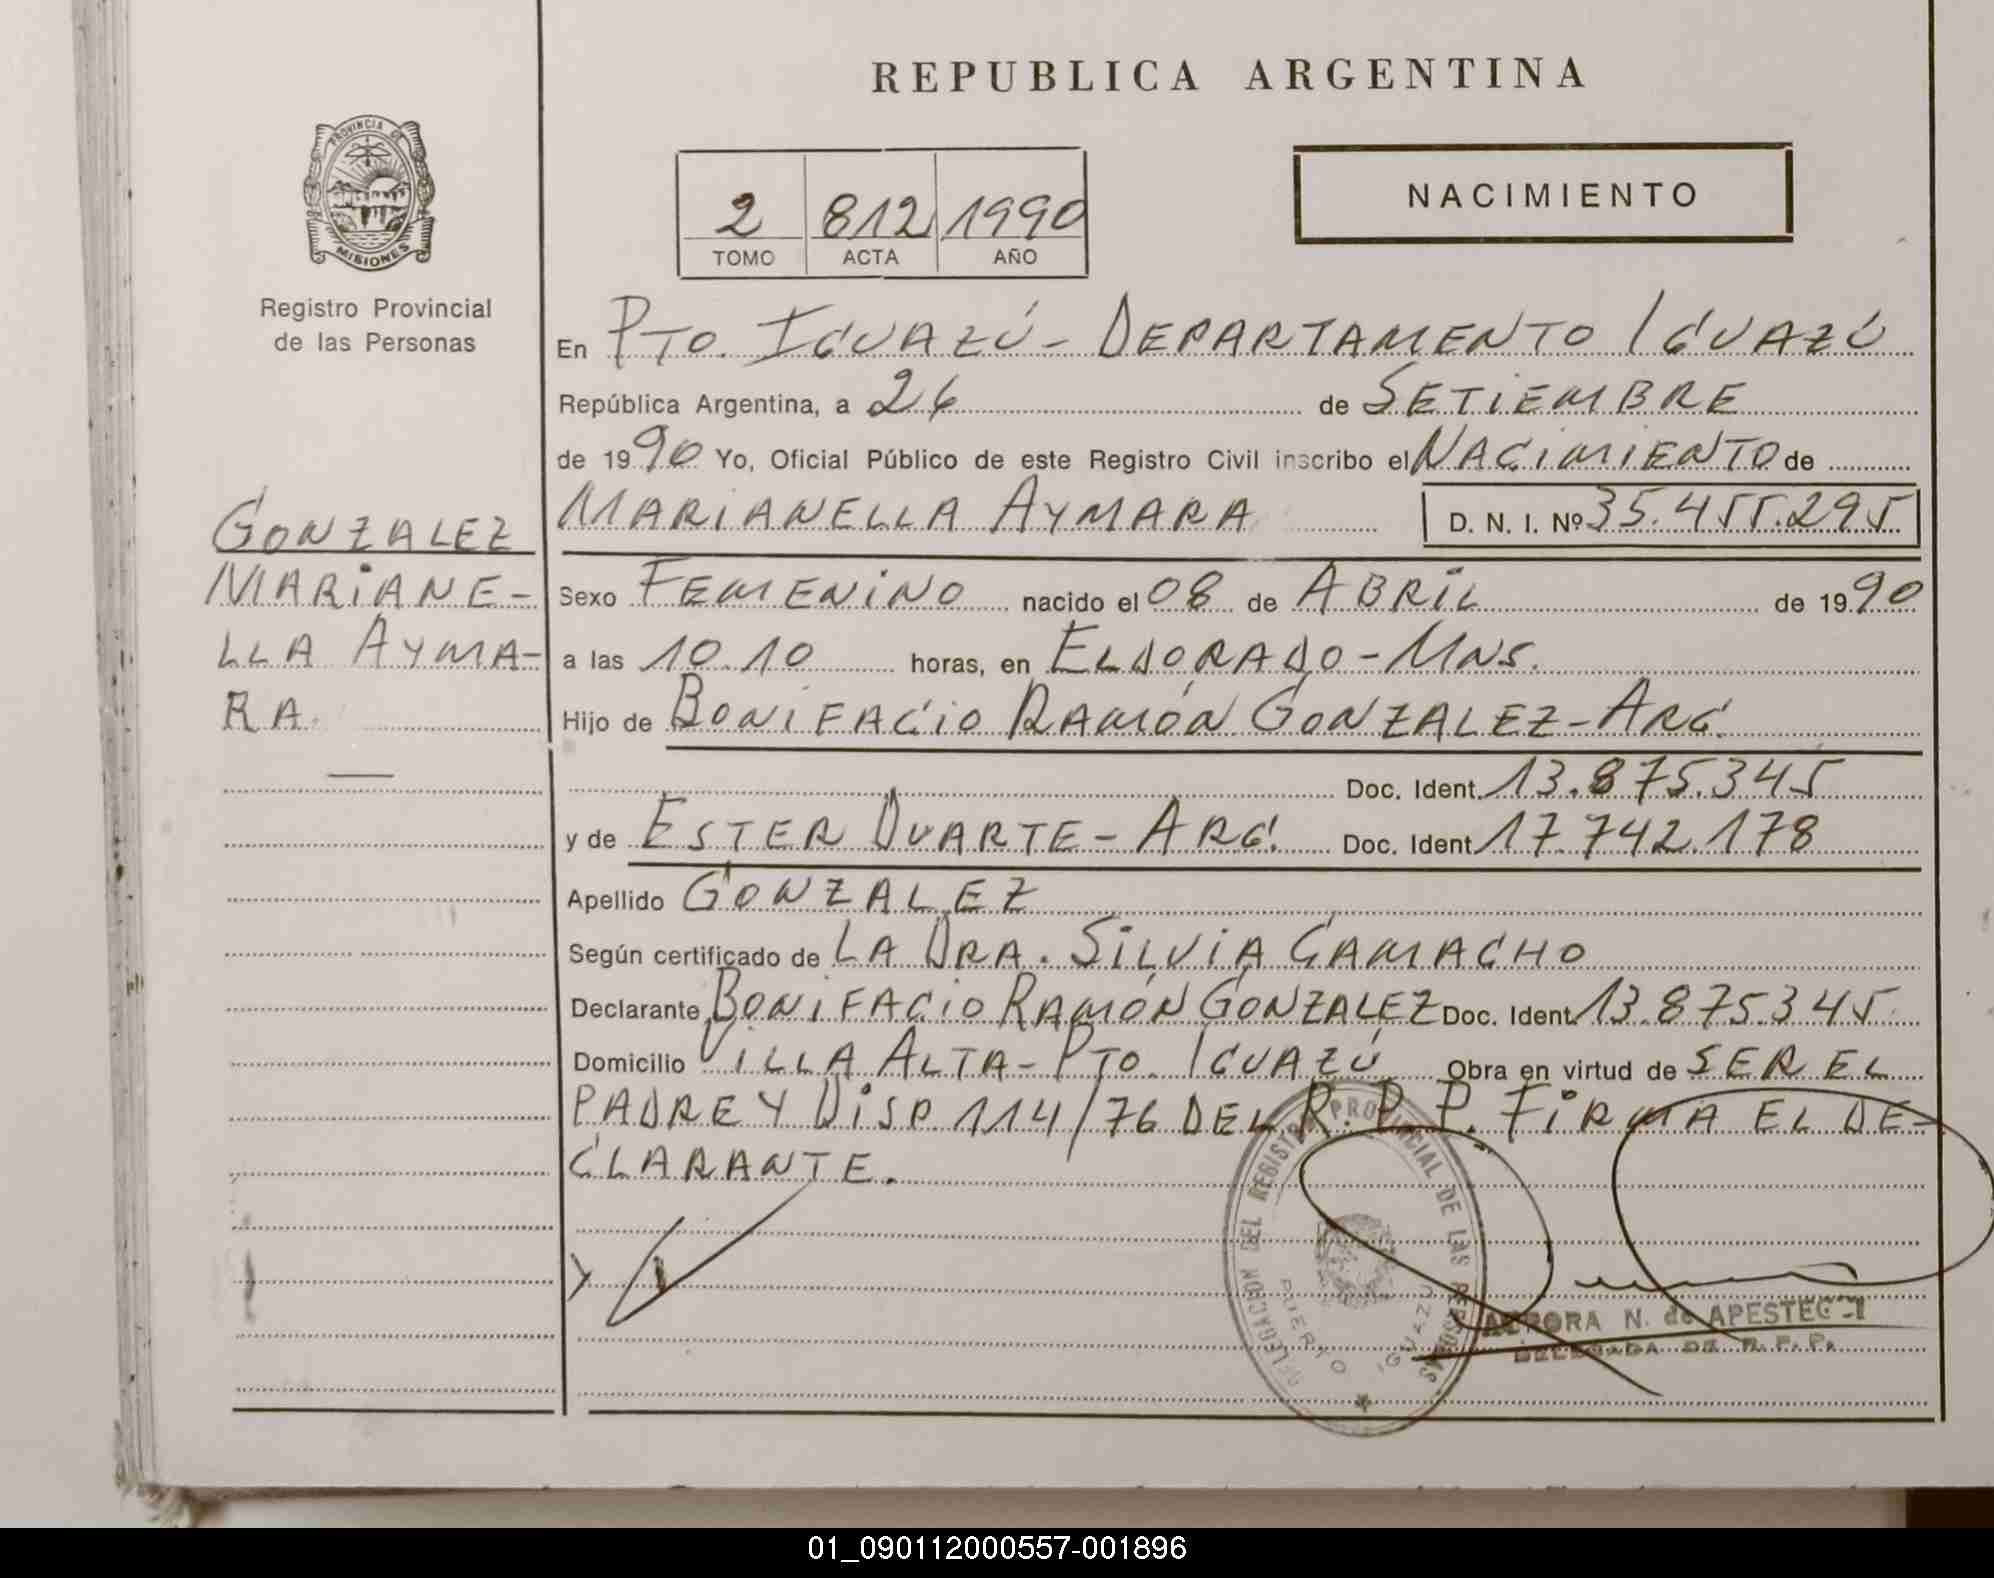 REPUBLICA ARGENTINA
PROVINCIA DE
MISIONES
Registro Provincial
de las Personas
NACIMIENTO
2 812 1990
TOMO ACTA AÑO
En PTO. IGUAZÚ - DEPARTAMENTO IGUAZÚ
República Argentina, a 26 de SETIEMBRE
de 1990 Yo, Oficial Público de este Registro Civil inscribo el NACIMIENTO de
MARIANELLA AYMARA D. N. I. Nº 35.455.295
GONZALEZ
MARIANE-
LLA AYMA-
RA.
Sexo FEMENINO nacido el 08 de ABRIL de 1990
a las 10.10 horas, en ELDORADO - MNS.
Hijo de BONIFACIO RAMÓN GONZALEZ - ARG.
Doc. Ident. 13.875.345
y de ESTER DUARTE - ARG. Doc. Ident 17.742.178
Apellido GONZALEZ
Según certificado de LA DRA. SILVIA CAMACHO
Declarante BONIFACIO RAMÓN GONZALEZ Doc. Ident. 13.875.345
Domicilio VILLA ALTA - PTO. IGUAZÚ Obra en virtud de SER EL
PADRE Y DISP. 114/76 DEL R. P. P. FIRMA EL DE-
CLARANTE.
DELEGACION DEL REGISTRO PROVINCIAL DE LAS PERSONAS
PUERTO IGUAZU
N. de
DELEGADA DE R. P. P.
01_090112000557-001896